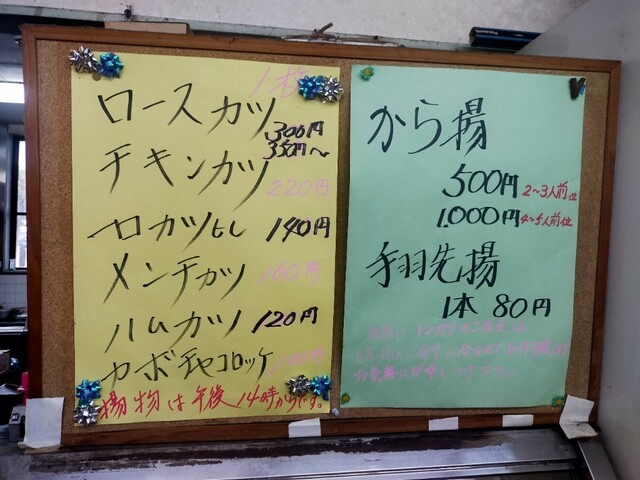 1枚
ロースカツ 300円
350円〜
チキンカツ 220円
一口カツヒレ 140円
メンチカツ 160円
ハムカツ 120円
カボチャコロッケ
揚物は午後14時からです。
から揚
500円 2〜3人前位
1.000円 4〜5人前位
手羽先揚
1本 80円
お気軽にお申し付け下さい。